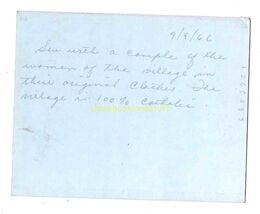 9/8/66
Sue with a couple of the
women of the village in
their original clothes. The
village is 100% Catholic.